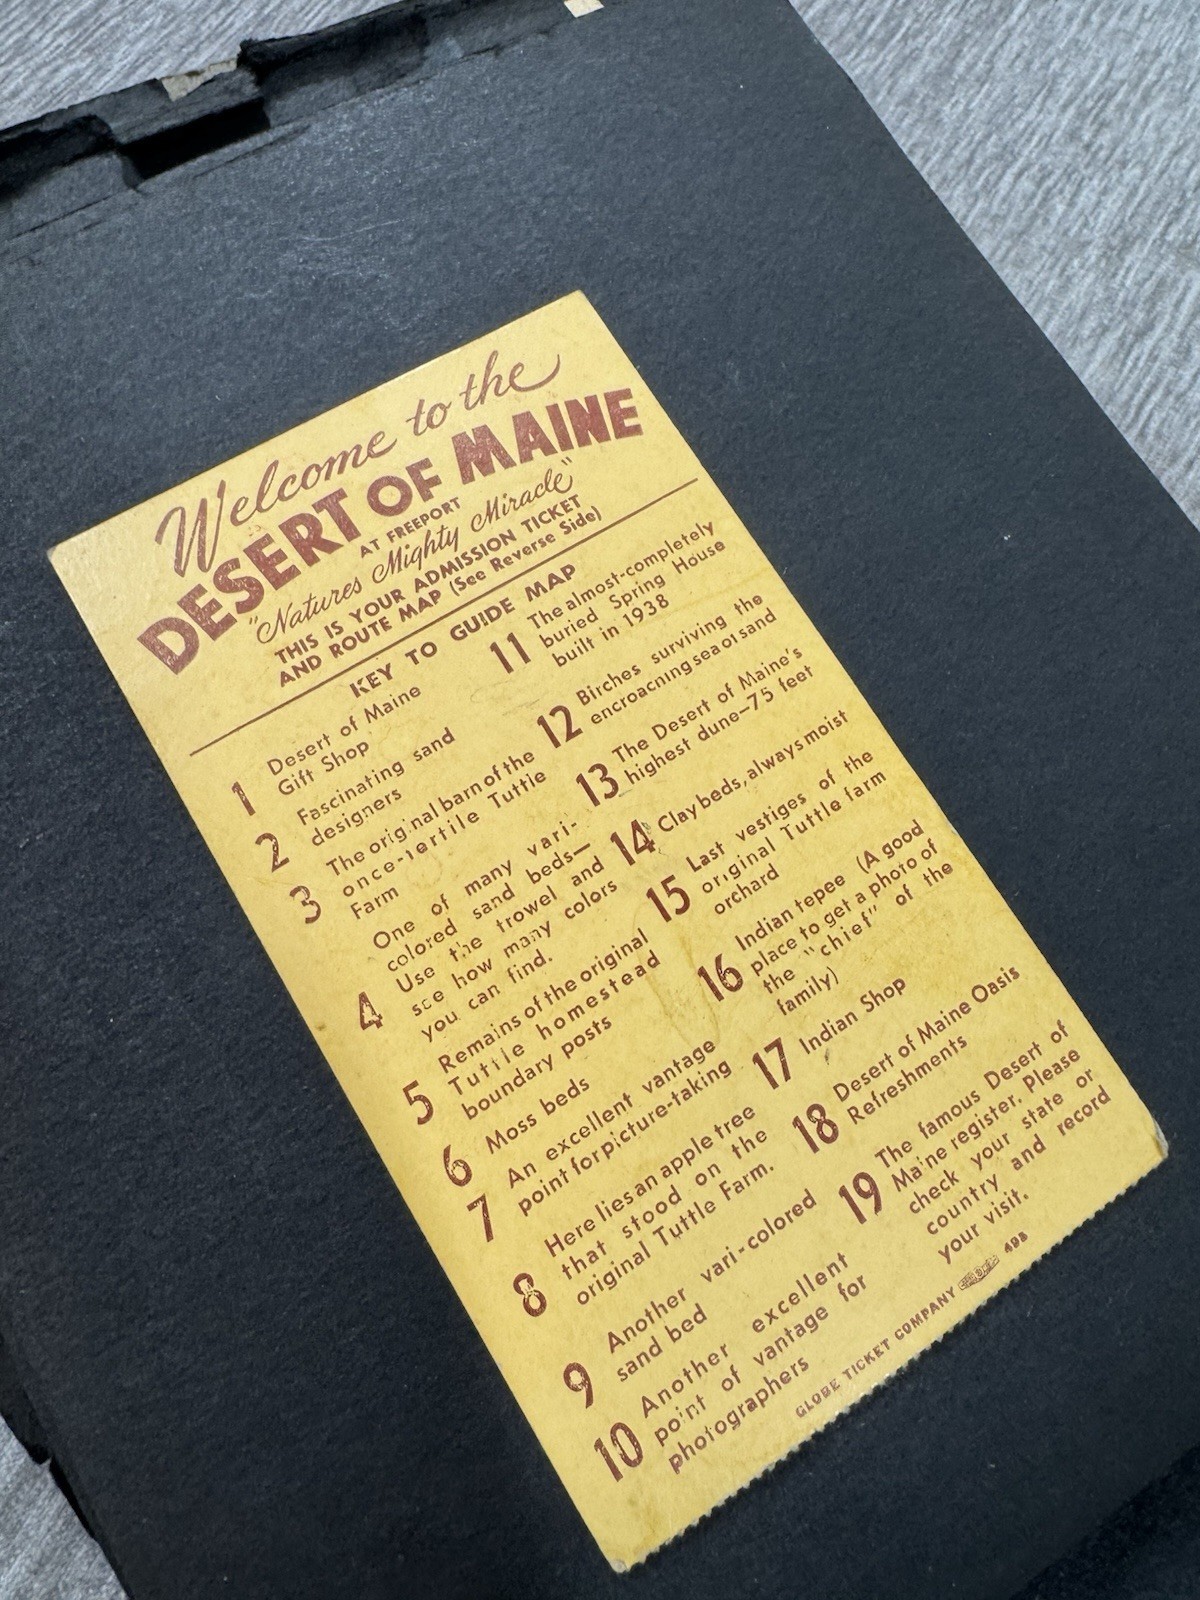 Welcome to the
DESERT OF MAINE
AT FREEPORT
"Natures Mighty Miracle"
THIS IS YOUR ADMISSION TICKET
AND ROUTE MAP (See Reverse Side)
KEY TO GUIDE MAP
1 Desert of Maine
Gift Shop
2 Fascinating sand
designers
3 The original barn of the
once-fertile Tuttle
Farm
4 One of many vari-
colored sand beds—
Use the trowel and
see how many colors
you can find.
5 Remains of the original
Tuttle homestead
boundary posts
6 Moss beds
7 An excellent vantage
point for picture-taking
8 Here lies an apple tree
that stood on the
original Tuttle Farm.
9 Another vari-colored
sand bed
10 Another excellent
point of vantage for
photographers
11 The almost-completely
buried Spring House
built in 1938
12 Birches surviving the
encroacning sea of sand
13 The Desert of Maine's
highest dune—75 feet
14 Clay beds, always moist
15 Last vestiges of the
original Tuttle farm
orchard
16 Indian tepee (A good
place to get a photo of
the "chief" of the
family)
17 Indian Shop
18 Desert of Maine Oasis
Refreshments
19 The famous Desert of
Maine register. Please
check your state or
country and record
your visit.
GLOBE TICKET COMPANY 49B